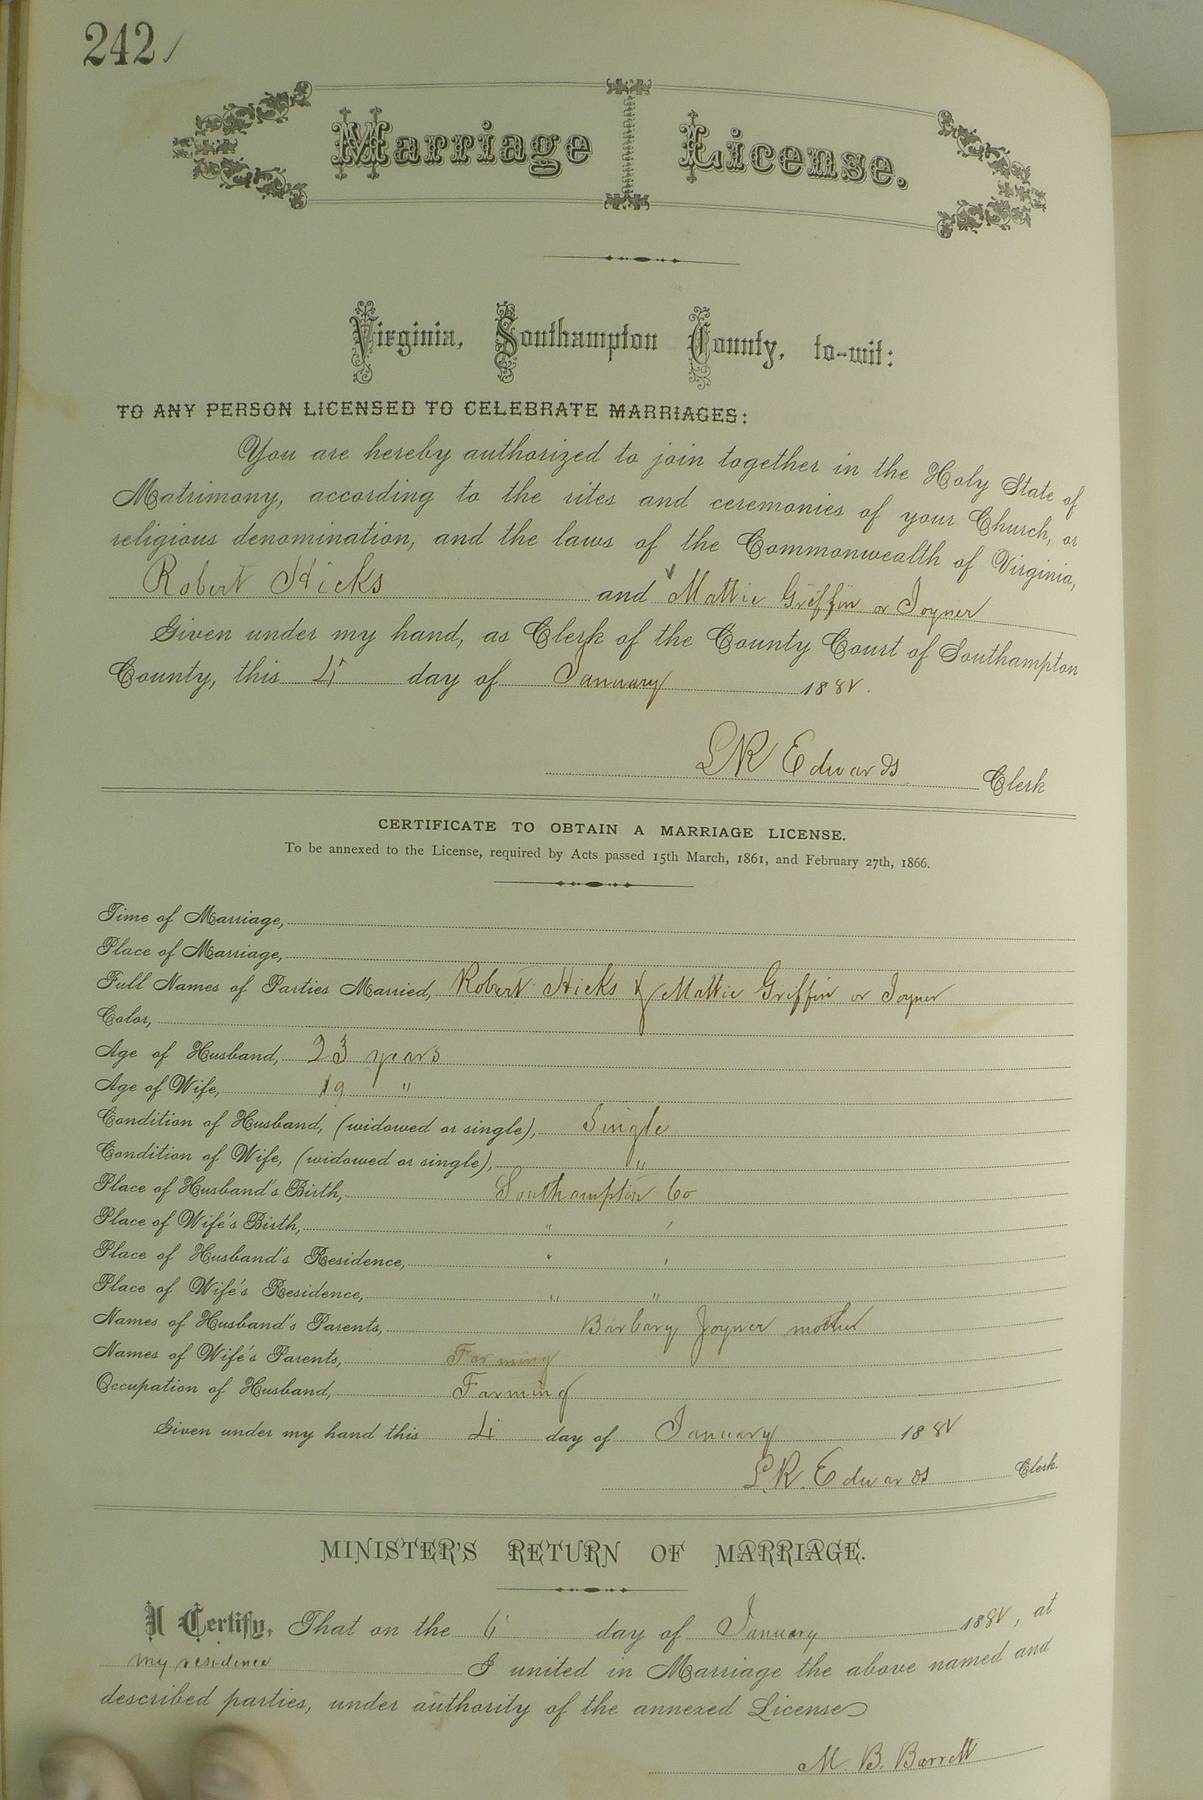 242
Marriage License.
Virginia, Southampton County, to-wit:
TO ANY PERSON LICENSED TO CELEBRATE MARRIAGES:
You are hereby authorized to join together in the Holy State of
Matrimony, according to the rites and ceremonies of your Church, or
religious denomination, and the laws of the Commonwealth of Virginia,
Robert Hicks and Mattie Griffin or Joyner
Given under my hand, as Clerk of the County Court of Southampton
County, this 4 day of January 188
L R Edwards Clerk
CERTIFICATE TO OBTAIN A MARRIAGE LICENSE.
To be annexed to the License, required by Acts passed 15th March, 1861, and February 27th, 1866.
Time of Marriage,
Place of Marriage,
Full Names of Parties Married, Robert Hicks & Mattie Griffin or Joyner
Color,
Age of Husband, 23 years
Age of Wife, 19 "
Condition of Husband, (widowed or single), Single
Condition of Wife, (widowed or single), "
Place of Husband's Birth, Southampton Co
Place of Wife's Birth, " '
Place of Husband's Residence, " '
Place of Wife's Residence, " "
Names of Husband's Parents, Barbary Joyner mother
Names of Wife's Parents, Farming
Occupation of Husband, Farming
Given under my hand this 4 day of January 188
L. R. Edwards Clerk.
MINISTER'S RETURN OF MARRIAGE.
I Certify, That on the 6 day of January 188 , at
my residence I united in Marriage the above named and
described parties, under authority of the annexed License
M. B. Barrett